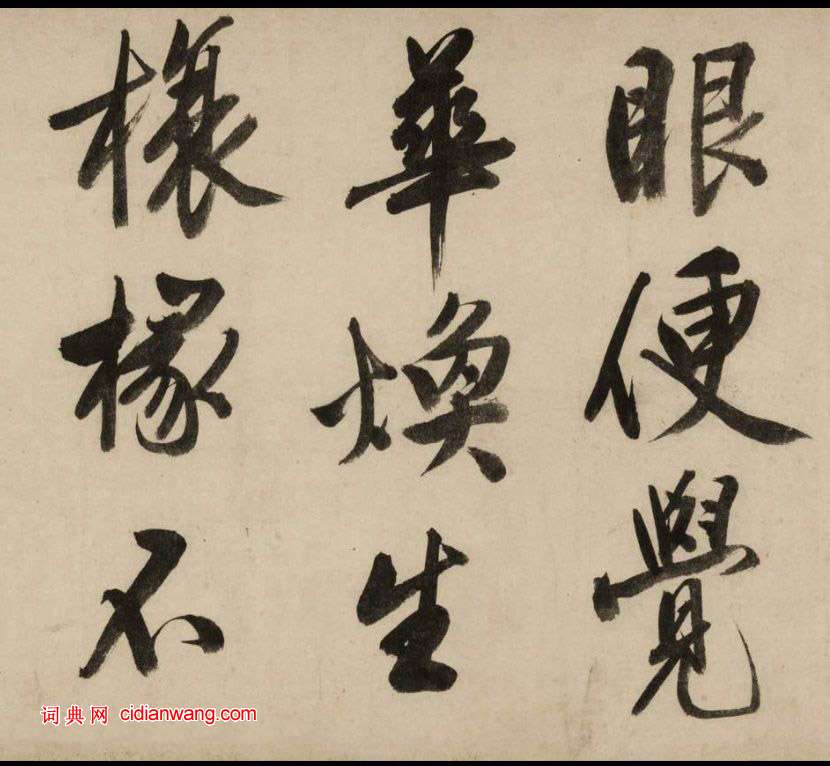 眼便覺
華煥生
榱椽不
词典网 cidianwang.com